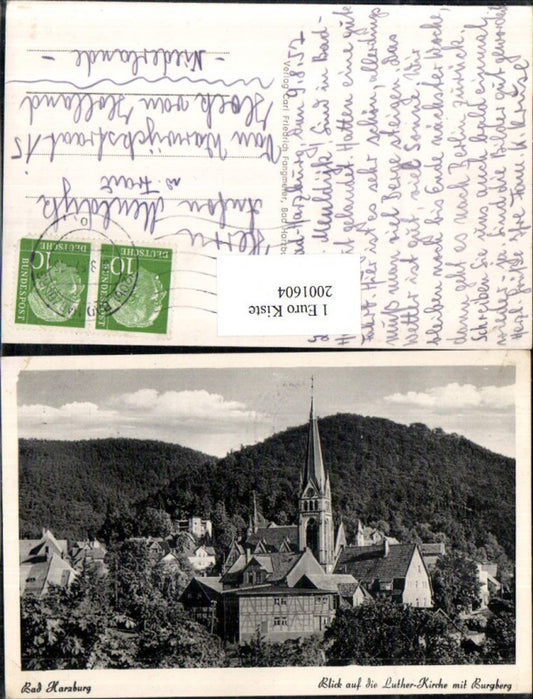 Bad-Harzburg, den 9.8.57
Meuldijk! Sind in Bad-
Harzburg gelandet. Hatten eine gute
Fahrt. Hier ist es sehr schön, allerdings
muß man viel Berge steigen, das
Wetter ist gut, viel Sonne. Wir
bleiben noch bis Ende nächster Woche,
dann geht es nach Berlin zurück.
Schreiben Sie uns auch bald einmal
wieder, sind die Bilder gut geworden
Herzl. Grüße Fam. K. Kruse
Verlag Karl Friedrich Fangmeier, Bad Harzburg
Herrn
Anton Meuldijk
u. Frau
Van Warwijckstraat 15
Hoek van Holland
- Niederlande -
DEUTSCHE
BUNDESPOST
10
DEUTSCHE
BUNDESPOST
10
1 Euro Kiste
2001604
Bad Harzburg
Blick auf die Luther-Kirche mit Burgberg